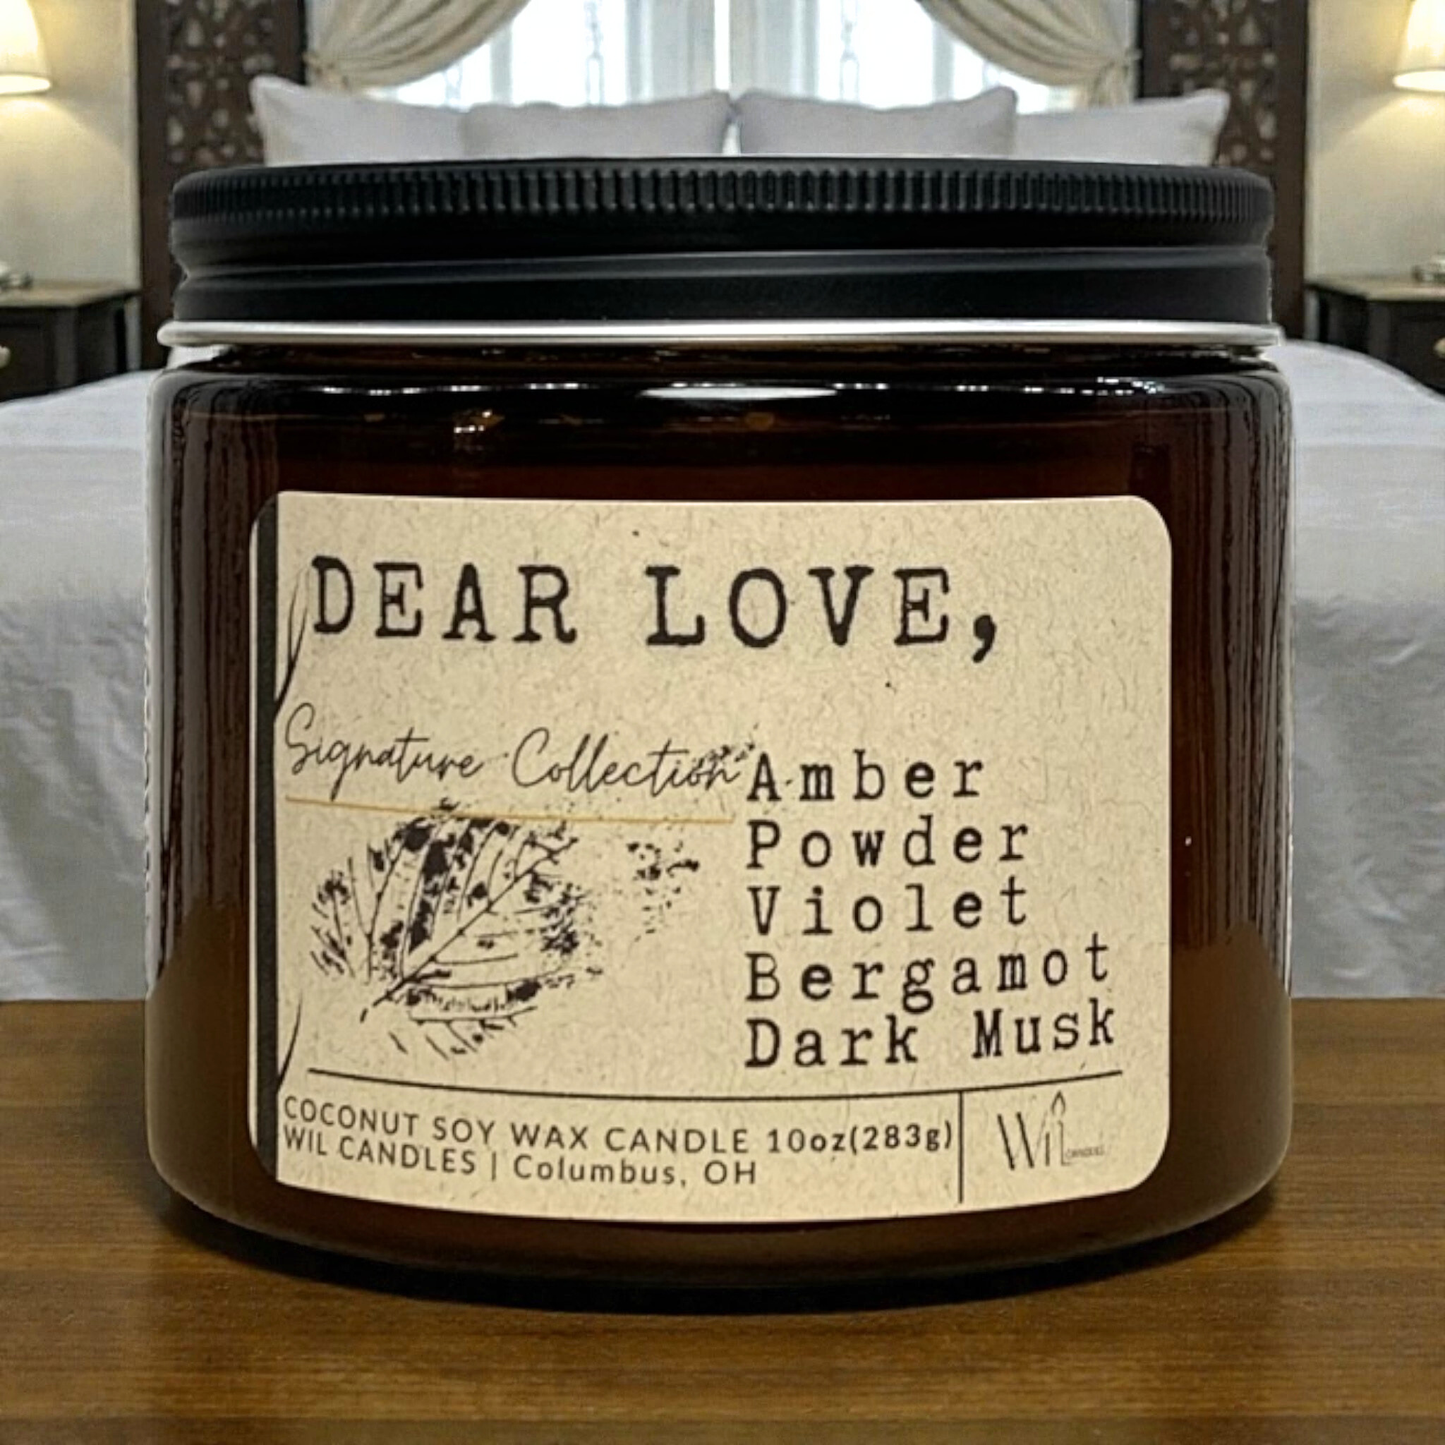 DEAR LOVE,
Signature Collection
Amber
Powder
Violet
Bergamot
Dark Musk
COCONUT SOY WAX CANDLE 10oz(283g)
WIL CANDLES | Columbus, OH
Wil
CANDLES